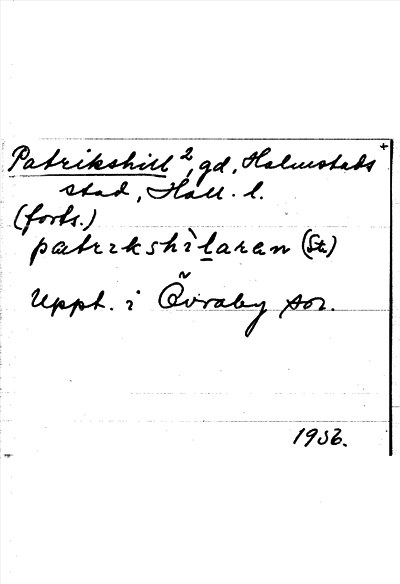 Patrikshill 2, gd, Halmstads +
stad, Hall. l.
(forts.)
patrikshìlaran (Str.)
Uppt. i Övraby sn.
1936.